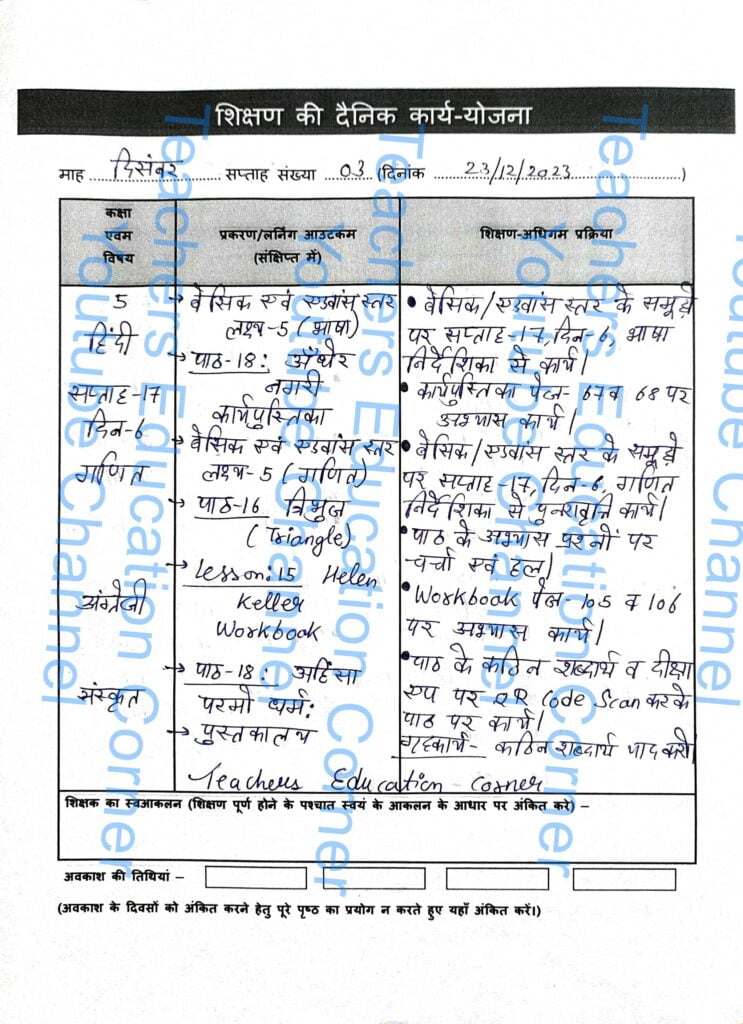 शिक्षण की दैनिक कार्य-योजना
माह दिसंबर सप्ताह संख्या 03 (दिनांक 23/12/2023)
कक्षा
एवम
विषय
प्रकरण/लर्निंग आउटकम
(संक्षिप्त में)
शिक्षण-अधिगम प्रक्रिया
5
हिंदी
सप्ताह-17
दिन-6
गणित
अंग्रेजी
संस्कृत
→ बेसिक एवं एडवांस स्तर
लक्ष्य-5 (भाषा)
→ पाठ-18: अँधेर
नगरी
कार्यपुस्तिका
→ बेसिक एवं एडवांस स्तर
लक्ष्य-5 (गणित)
→ पाठ-16 त्रिभुज
(Triangle)
→ Lesson:15 Helen
Keller
Workbook
→ पाठ-18: अहिंसा
परमो धर्म:
→ पुस्तकालय
• बेसिक/एडवांस स्तर के समूहों
पर सप्ताह-17, दिन-6, भाषा
निर्देशिका से कार्य।
• कार्यपुस्तिका पेज- 67 व 68 पर
अभ्यास कार्य।
• बेसिक/एडवांस स्तर के समूहों
पर सप्ताह-17, दिन-6, गणित
निर्देशिका से पुनरावृत्ति कार्य।
• पाठ के अभ्यास प्रश्नों पर
चर्चा एवं हल।
• Workbook पेज- 105 व 106
पर अभ्यास कार्य।
• पाठ के कठिन शब्दार्थ व दीक्षा
एप पर QR Code Scan करके
पाठ पर कार्य।
गृहकार्य- कठिन शब्दार्थ याद करो।
Teachers Education Corner
शिक्षक का स्वआकलन (शिक्षण पूर्ण होने के पश्चात स्वयं के आकलन के आधार पर अंकित करे) –
अवकाश की तिथियां –
(अवकाश के दिवसों को अंकित करने हेतु पूरे पृष्ठ का प्रयोग न करते हुए यहाँ अंकित करें।)
Teachers Education Corner
Youtube Channel
Teachers Education Corner
Youtube Channel
Teachers Education Corner
Youtube Channel